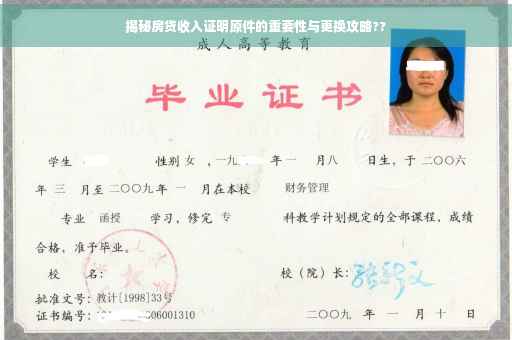 揭秘房贷收入证明原件的重要性与更换攻略??
成人高等教育
毕业证书
学生 性别 女 ,一九 年 一 月八 日生，于二〇〇六
年 三 月至二〇〇九年 一 月在本校 财务管理
专业 函授 学习，修完 专 科教学计划规定的全部课程，成绩
合格，准予毕业。
校 名： 校（院）长：
批准文号：教计[1998]33号
证书编号： 006001310 二〇〇九 年 一 月 十 日